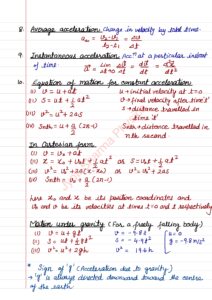 8. Average acceleration Change in velocity by total time.
a_av = v₂-v₁/t₂-t₁ = Δv/Δt
9. Instantaneous acceleration Accⁿ at a particular instant
of time a⃗ = lim Δt→0 Δv⃗/Δt = dv⃗/dt = d²x⃗/dt²
10. Equation of motion for constant acceleration
(i) v = u + at u = initial velocity at t=0
(ii) S = ut + ½at² v = final velocity after time 't'
(iii) v² = u² + 2as s = distance travelled in
time 't'
(iv) Snth = u + a/2 (2n-1) Snth = distance travelled in
nth second
In Cartesian form
(i) v = v₀ + at
(ii) x = x₀ + v₀t + ½at² or S = v₀t + ½at²
(iii) v² = v₀² + 2a(x-x₀) or v² = v₀² + 2as
(iv) Snth = v₀ + a/2 (2n-1)
here x₀ and x be its position coordinates and
v₀ and v be its velocities at times t=0 and t respectively
Motion under gravity (For a freely falling body)
(i) v = u + gt v = -9.8t u = 0
(ii) S = ut + ½gt² S = -4.9t² g = -9.8 m/s²
(iii) v² = u² + 2gh v² = 19.6h
* Sign of 'g' (Acceleration due to gravity)
→ 'g' is always directed downward toward the centre
of the earth